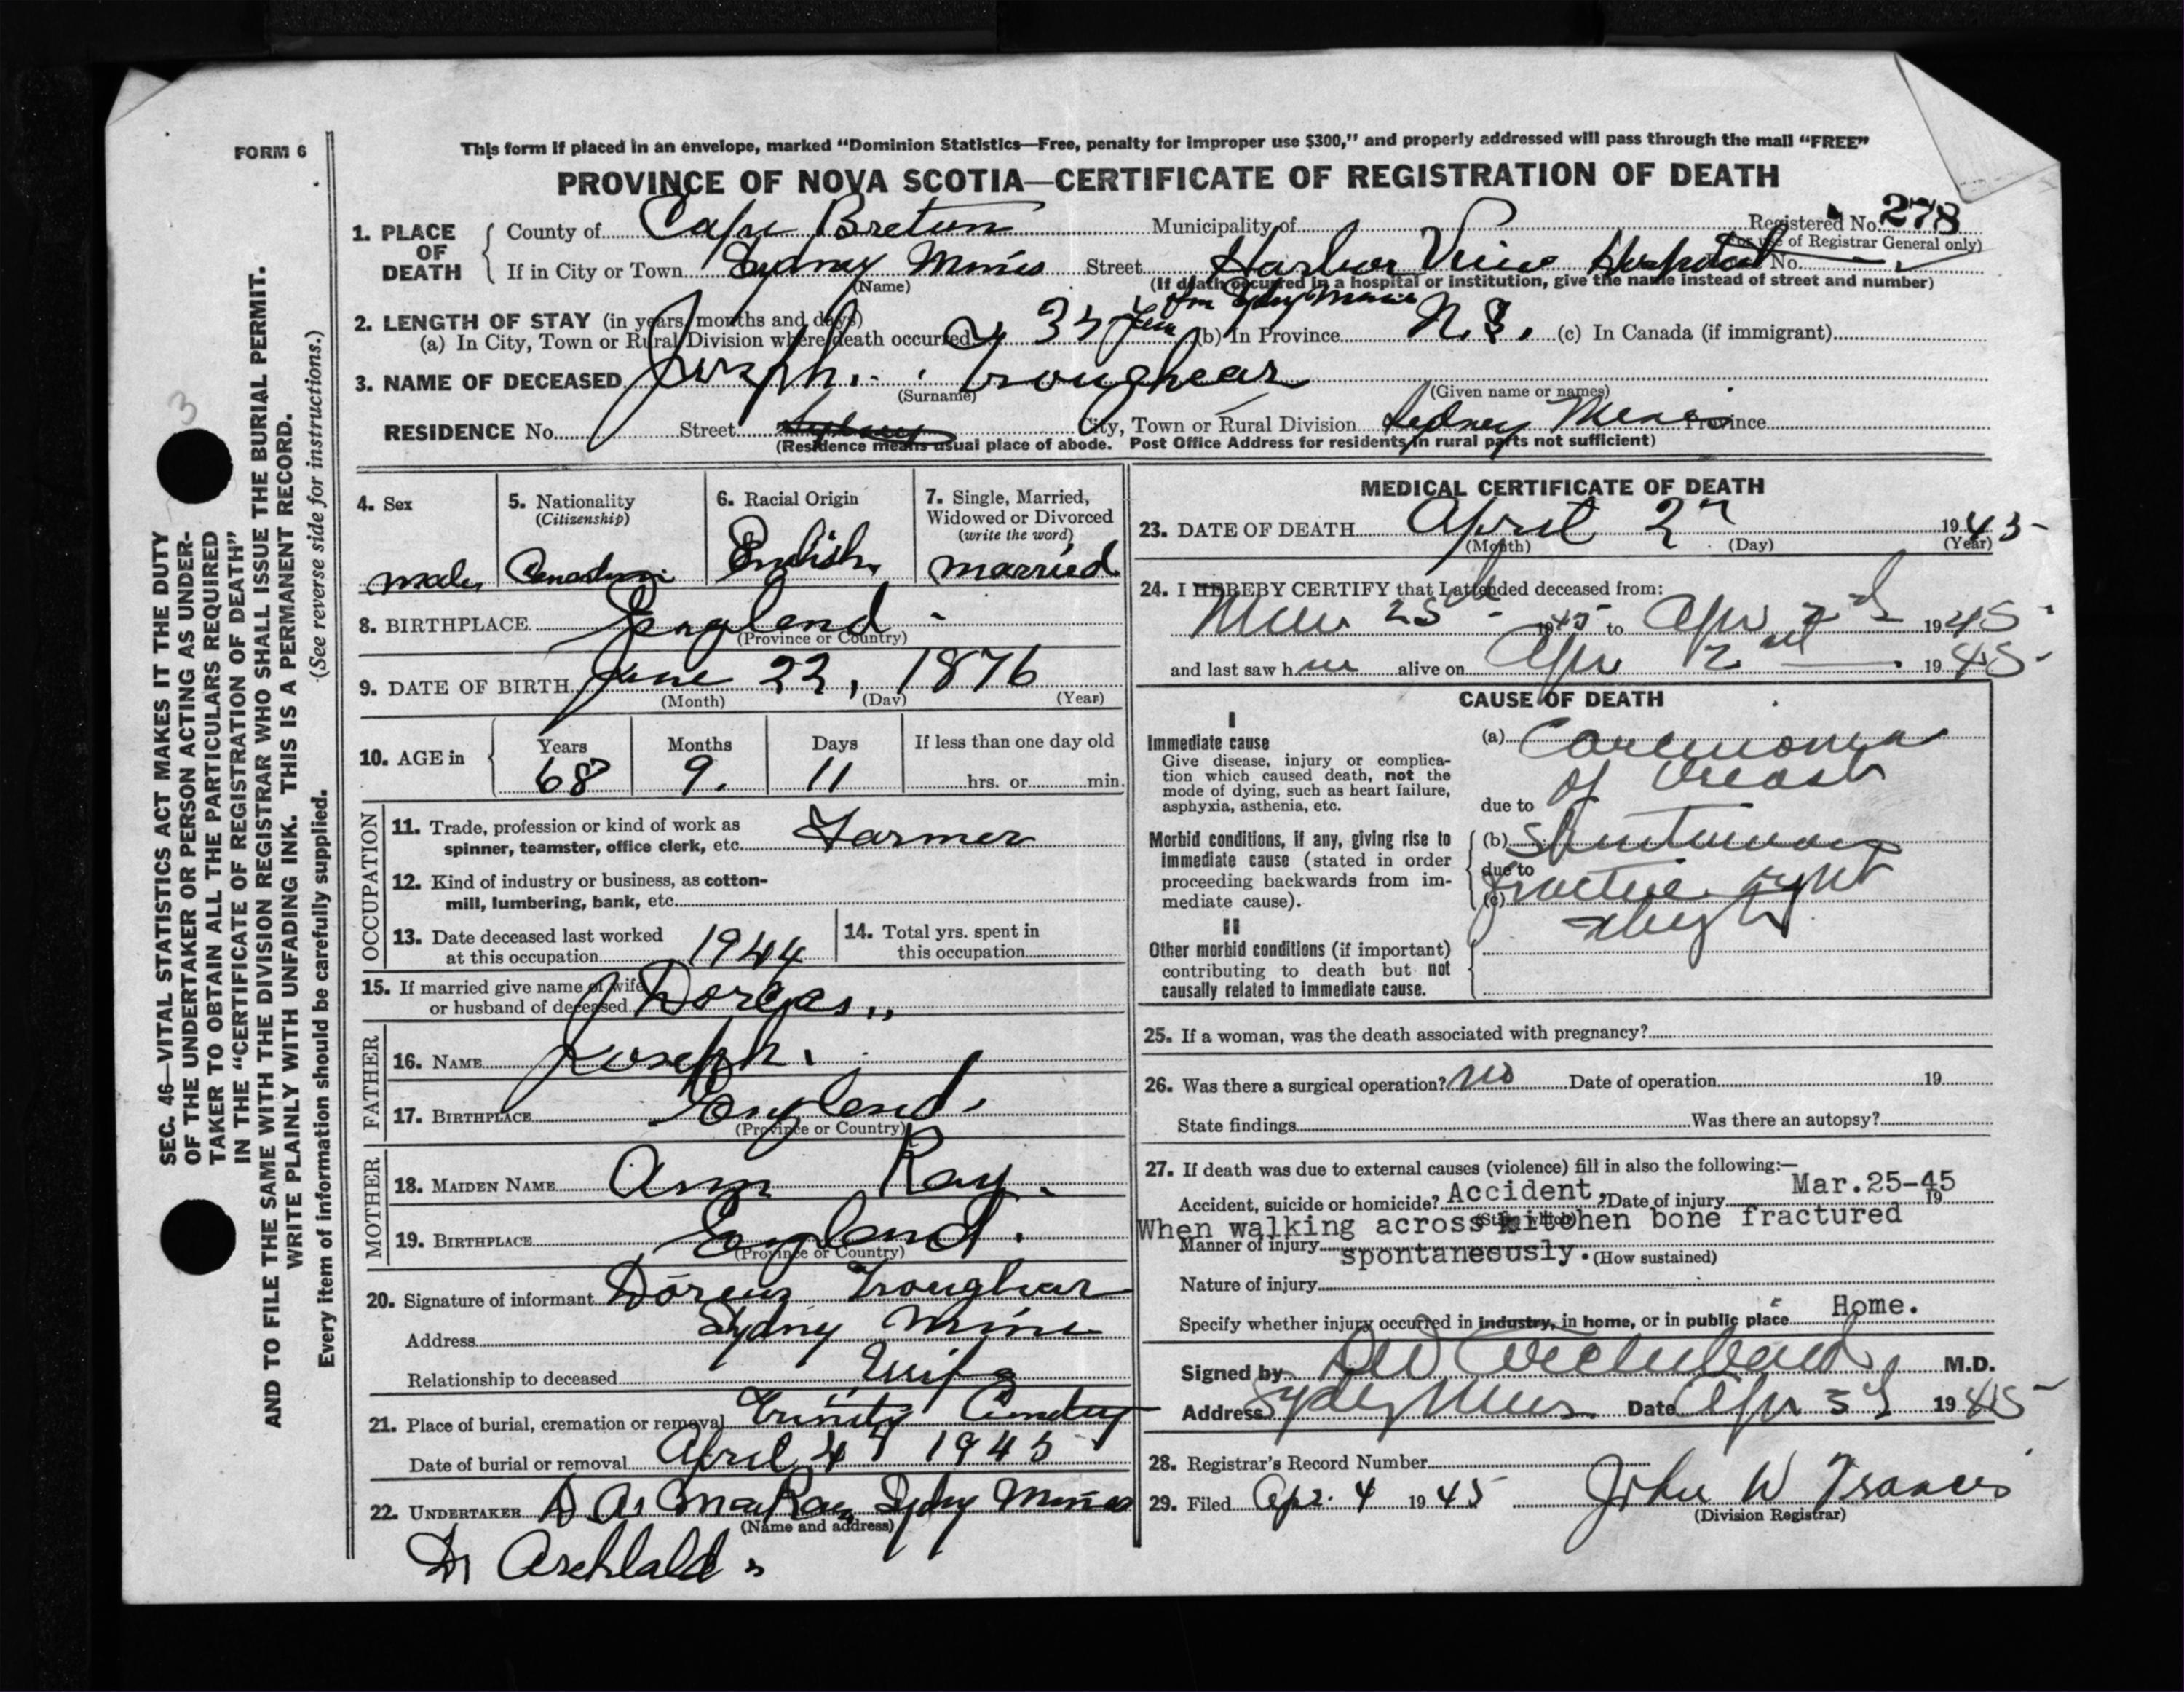 FORM 6
This form if placed in an envelope, marked “Dominion Statistics—Free, penalty for improper use $300,” and properly addressed will pass through the mail “FREE”
PROVINCE OF NOVA SCOTIA—CERTIFICATE OF REGISTRATION OF DEATH
Registered No. 278
(For use of Registrar General only)
1. PLACE OF DEATH
County of Cape Breton Municipality of
If in City or Town Sydney Mines Street Harbor View Hospital No.
(Name) (If death occurred in a hospital or institution, give the name instead of street and number)
2. LENGTH OF STAY (in years, months and days)
(a) In City, Town or Rural Division where death occurred 35 (b) In Province N.S. (c) In Canada (if immigrant)
3. NAME OF DECEASED Joseph Troughear
(Surname) (Given name or names)
RESIDENCE No. Street Sydney City, Town or Rural Division Sydney Mines Province
(Residence means usual place of abode. Post Office Address for residents in rural parts not sufficient)
4. Sex male
5. Nationality (Citizenship) Canadian
6. Racial Origin English
7. Single, Married, Widowed or Divorced (write the word) married
8. BIRTHPLACE England
(Province or Country)
9. DATE OF BIRTH June 22, 1876
(Month) (Day) (Year)
10. AGE in Years 68 Months 9. Days 11 If less than one day old hrs. or min.
OCCUPATION
11. Trade, profession or kind of work as spinner, teamster, office clerk, etc. Farmer
12. Kind of industry or business, as cotton-mill, lumbering, bank, etc.
13. Date deceased last worked at this occupation 1944
14. Total yrs. spent in this occupation
15. If married give name of wife or husband of deceased Dorcas
FATHER
16. NAME Joseph.
17. BIRTHPLACE England.
(Province or Country)
MOTHER
18. MAIDEN NAME Ann Ray.
19. BIRTHPLACE England.
(Province or Country)
20. Signature of informant Dorcus Troughear
Address Sydney Mines
Relationship to deceased Wife
21. Place of burial, cremation or removal Trinity Cemetery
Date of burial or removal April 4 1945
22. UNDERTAKER Sydney Mines
(Name and address)
Dr Archbald
MEDICAL CERTIFICATE OF DEATH
23. DATE OF DEATH April 2 1945
(Month) (Day) (Year)
24. I HEREBY CERTIFY that I attended deceased from:
25 1945 to Apr 2nd 1945
and last saw him alive on Apr 2nd 1945
CAUSE OF DEATH
I
Immediate cause
Give disease, injury or complication which caused death, not the mode of dying, such as heart failure, asphyxia, asthenia, etc.
(a) Carcinoma of breast
due to
Morbid conditions, if any, giving rise to immediate cause (stated in order proceeding backwards from immediate cause).
(b)
due to
(c) fracture right thigh
II
Other morbid conditions (if important) contributing to death but not causally related to immediate cause.
25. If a woman, was the death associated with pregnancy?
26. Was there a surgical operation? no Date of operation 19
State findings Was there an autopsy?
27. If death was due to external causes (violence) fill in also the following:—
Accident, suicide or homicide? Accident, Date of injury Mar.25-45 19
(State which)
When walking across kitchen bone fractured
Manner of injury spontaneously. (How sustained)
Nature of injury
Specify whether injury occurred in industry, in home, or in public place Home.
Signed by Archibald M.D.
Address Sydney Mines Date Apr 3d 1945
28. Registrar's Record Number
29. Filed Apr. 4 1945 John W Francis
(Division Registrar)
SEC. 46—VITAL STATISTICS ACT MAKES IT THE DUTY
OF THE UNDERTAKER OR PERSON ACTING AS UNDER-
TAKER TO OBTAIN ALL THE PARTICULARS REQUIRED
IN THE “CERTIFICATE OF REGISTRATION OF DEATH”
AND TO FILE THE SAME WITH THE DIVISION REGISTRAR WHO SHALL ISSUE THE BURIAL PERMIT.
WRITE PLAINLY WITH UNFADING INK. THIS IS A PERMANENT RECORD.
Every item of information should be carefully supplied. (See reverse side for instructions.)
3